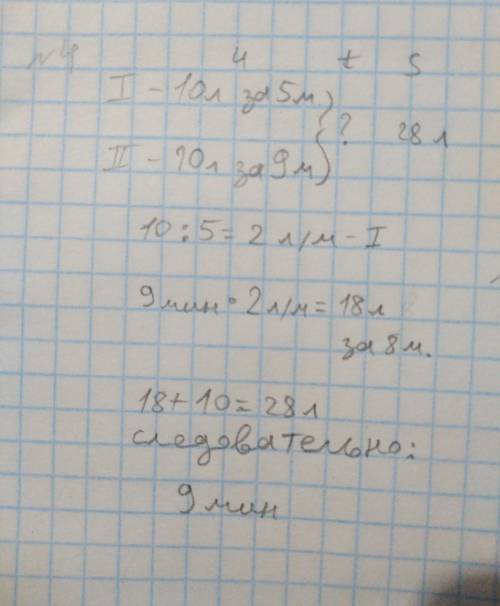 №4
u t S
I - 10л за 5м
? 28 л
II - 10л за 9м
10 : 5 = 2 л/м - I
9мин · 2л/м = 18л
за 8м.
18 + 10 = 28л
следовательно:
9 мин